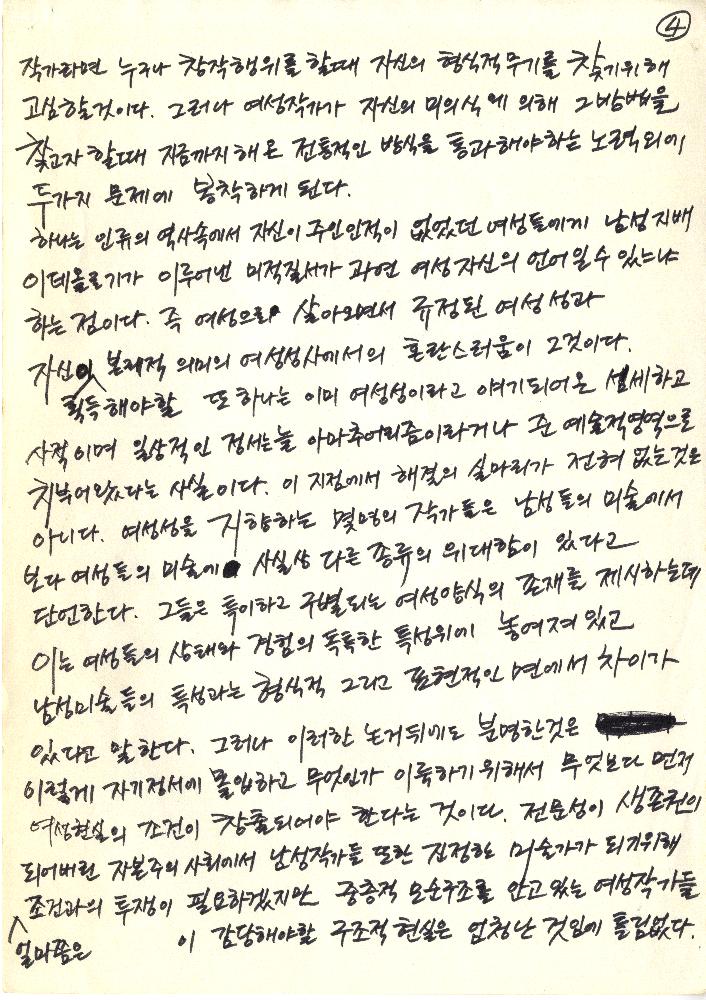 ④
작가라면 누구나 창작행위를 할때 자신의 형식적무기를 찾기위해
고심할것이다. 그러나 여성작가가 자신의 미의식에 의해 그방법을
찾고자 할때 지금까지해온 전통적인 방식을 통과해야하는 노력외에
두가지 문제에 봉착하게 된다.
하나는 인류의 역사속에서 자신이 주인인적이 없었던 여성들에게 남성지배
이데올로기가 이루어낸 미적질서가 과연 여성자신의 언어일수 있느냐
하는 점이다. 즉 여성으로 살아오면서 규정된 여성성과
자신이 획득해야할 본래적 의미의 여성성사에서의 혼란스러움이 그것이다.
또 하나는 이미 여성성이라고 얘기되어온 섬세하고
사적이며 일상적인 정서는늘 아마추어리즘이라거나 준 예술적영역으로
치부어왔다는 사실이다. 이 지점에서 해결의 실마리가 전혀 없는것은
아니다. 여성성을 지향하는 몇명의 작가들은 남성들의 미술에서
보다 여성들의 미술에 사실상 다른 종류의 위대함이 있다고
단언한다. 그들은 특이하고 구별되는 여성양식의 존재를 제시하는데
이는 여성들의 상태와 경험의 독특한 특성위에 놓여져 있고
남성미술들의 특성과는 형식적 그리고 표현적인 면에서 차이가
있다고 말한다. 그러나 이러한 논거뒤에도 분명한것은
이렇게 자기정서에 몰입하고 무엇인가 이룩하기위해서 무엇보다 먼저
여성현실의 조건이 창출되어야 한다는 것이다. 전문성이 생존권이
되어버린 자본주의 사회에서 남성작가들 또한 진정한 미술가가 되기위해
얼마쯤은 조건과의 투쟁이 필요하겠지만 중층적 모순구조를 안고있는 여성작가들
이 감당해야할 구조적 현실은 엄청난 것임에 틀림없다.